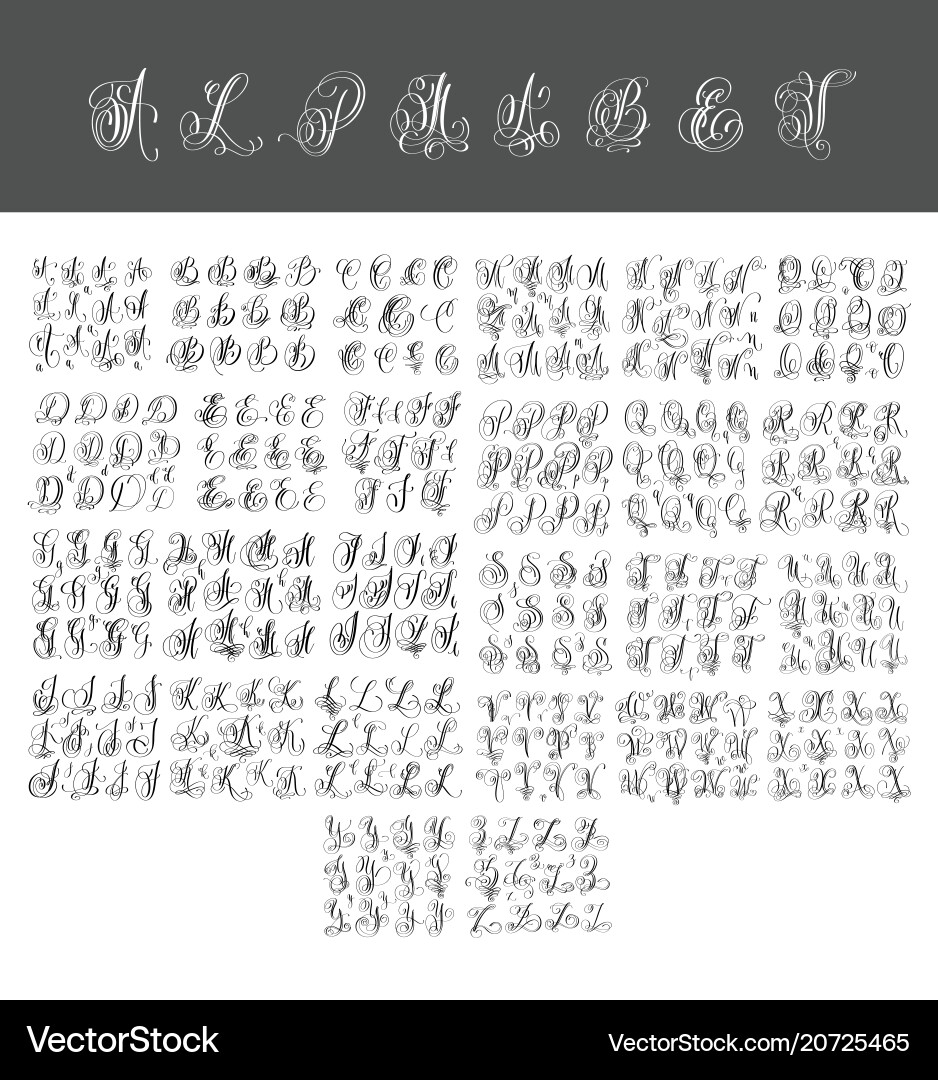 A L P H A B E T
A A A A
A A A A
A A A A
B B B B
B B B B
B B B B
C C C C
C C C C
C C C C
D D D D
D D D D
D D D D
E E E E
E E E E
E E E E
F F F F
F F F F
F F F
G G G G
G G G G
G G G G
H H H H
H H H H
H H H H
I I I I
I I I I
I I I I
J J J J
J J J J
J J J J
K K K K
K K K
K K K K
L L L L
L L L L
L L L L
M M M M
M M M M
M M M M
N N N N
N N N N
N N N N
O O O O
O O O O
O O O O
P P P P
P P P P
P P P P
Q Q Q Q
Q Q Q q
Q Q Q Q
R R R R
R R R R
R R R R
S S S S
S S S S
S S S S
T T T T
T T T T
T T T T
U U U U
U U U U
U U U U
V V V V
V V V V
V V V V
W W W W
W W W W
W W W W
X X X X
X X X X
X X X X
Y Y Y Y
Y Y Y Y
Y Y Y Y
Z Z Z Z
Z Z Z Z
Z Z Z Z
VectorStock
VectorStock.com/20725465